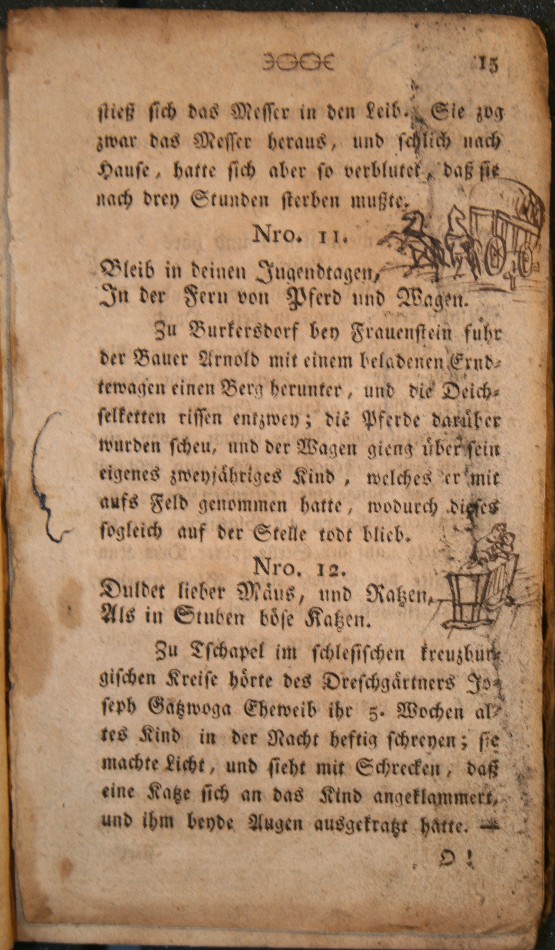 15
stieß sich das Messer in den Leib. Sie zog
zwar das Messer heraus, und schlich nach
Hause, hatte sich aber so verblutet, daß sie
nach drey Stunden sterben mußte.
Nro. 11.
Bleib in deinen Jugendtagen,
In der Fern von Pferd und Wagen.
Zu Burkersdorf bey Frauenstein fuhr
der Bauer Arnold mit einem beladenen Ernd-
tewagen einen Berg herunter, und die Deich-
selketten rissen entzwey; die Pferde darüber
wurden scheu, und der Wagen gieng über sein
eigenes zweyjähriges Kind, welches er mit
aufs Feld genommen hatte, wodurch dieses
sogleich auf der Stelle todt blieb.
Nro. 12.
Duldet lieber Mäus, und Ratzen,
Als in Stuben böse Katzen.
Zu Tschapel im schlesischen kreuzbur-
gischen Kreise hörte des Dreschgärtners Jo-
seph Gatzwoga Eheweib ihr 5. Wochen al-
tes Kind in der Nacht heftig schreyen; sie
machte Licht, und sieht mit Schrecken, daß
eine Katze sich an das Kind angeklammert,
und ihm beyde Augen ausgekratzt hatte. —
O!